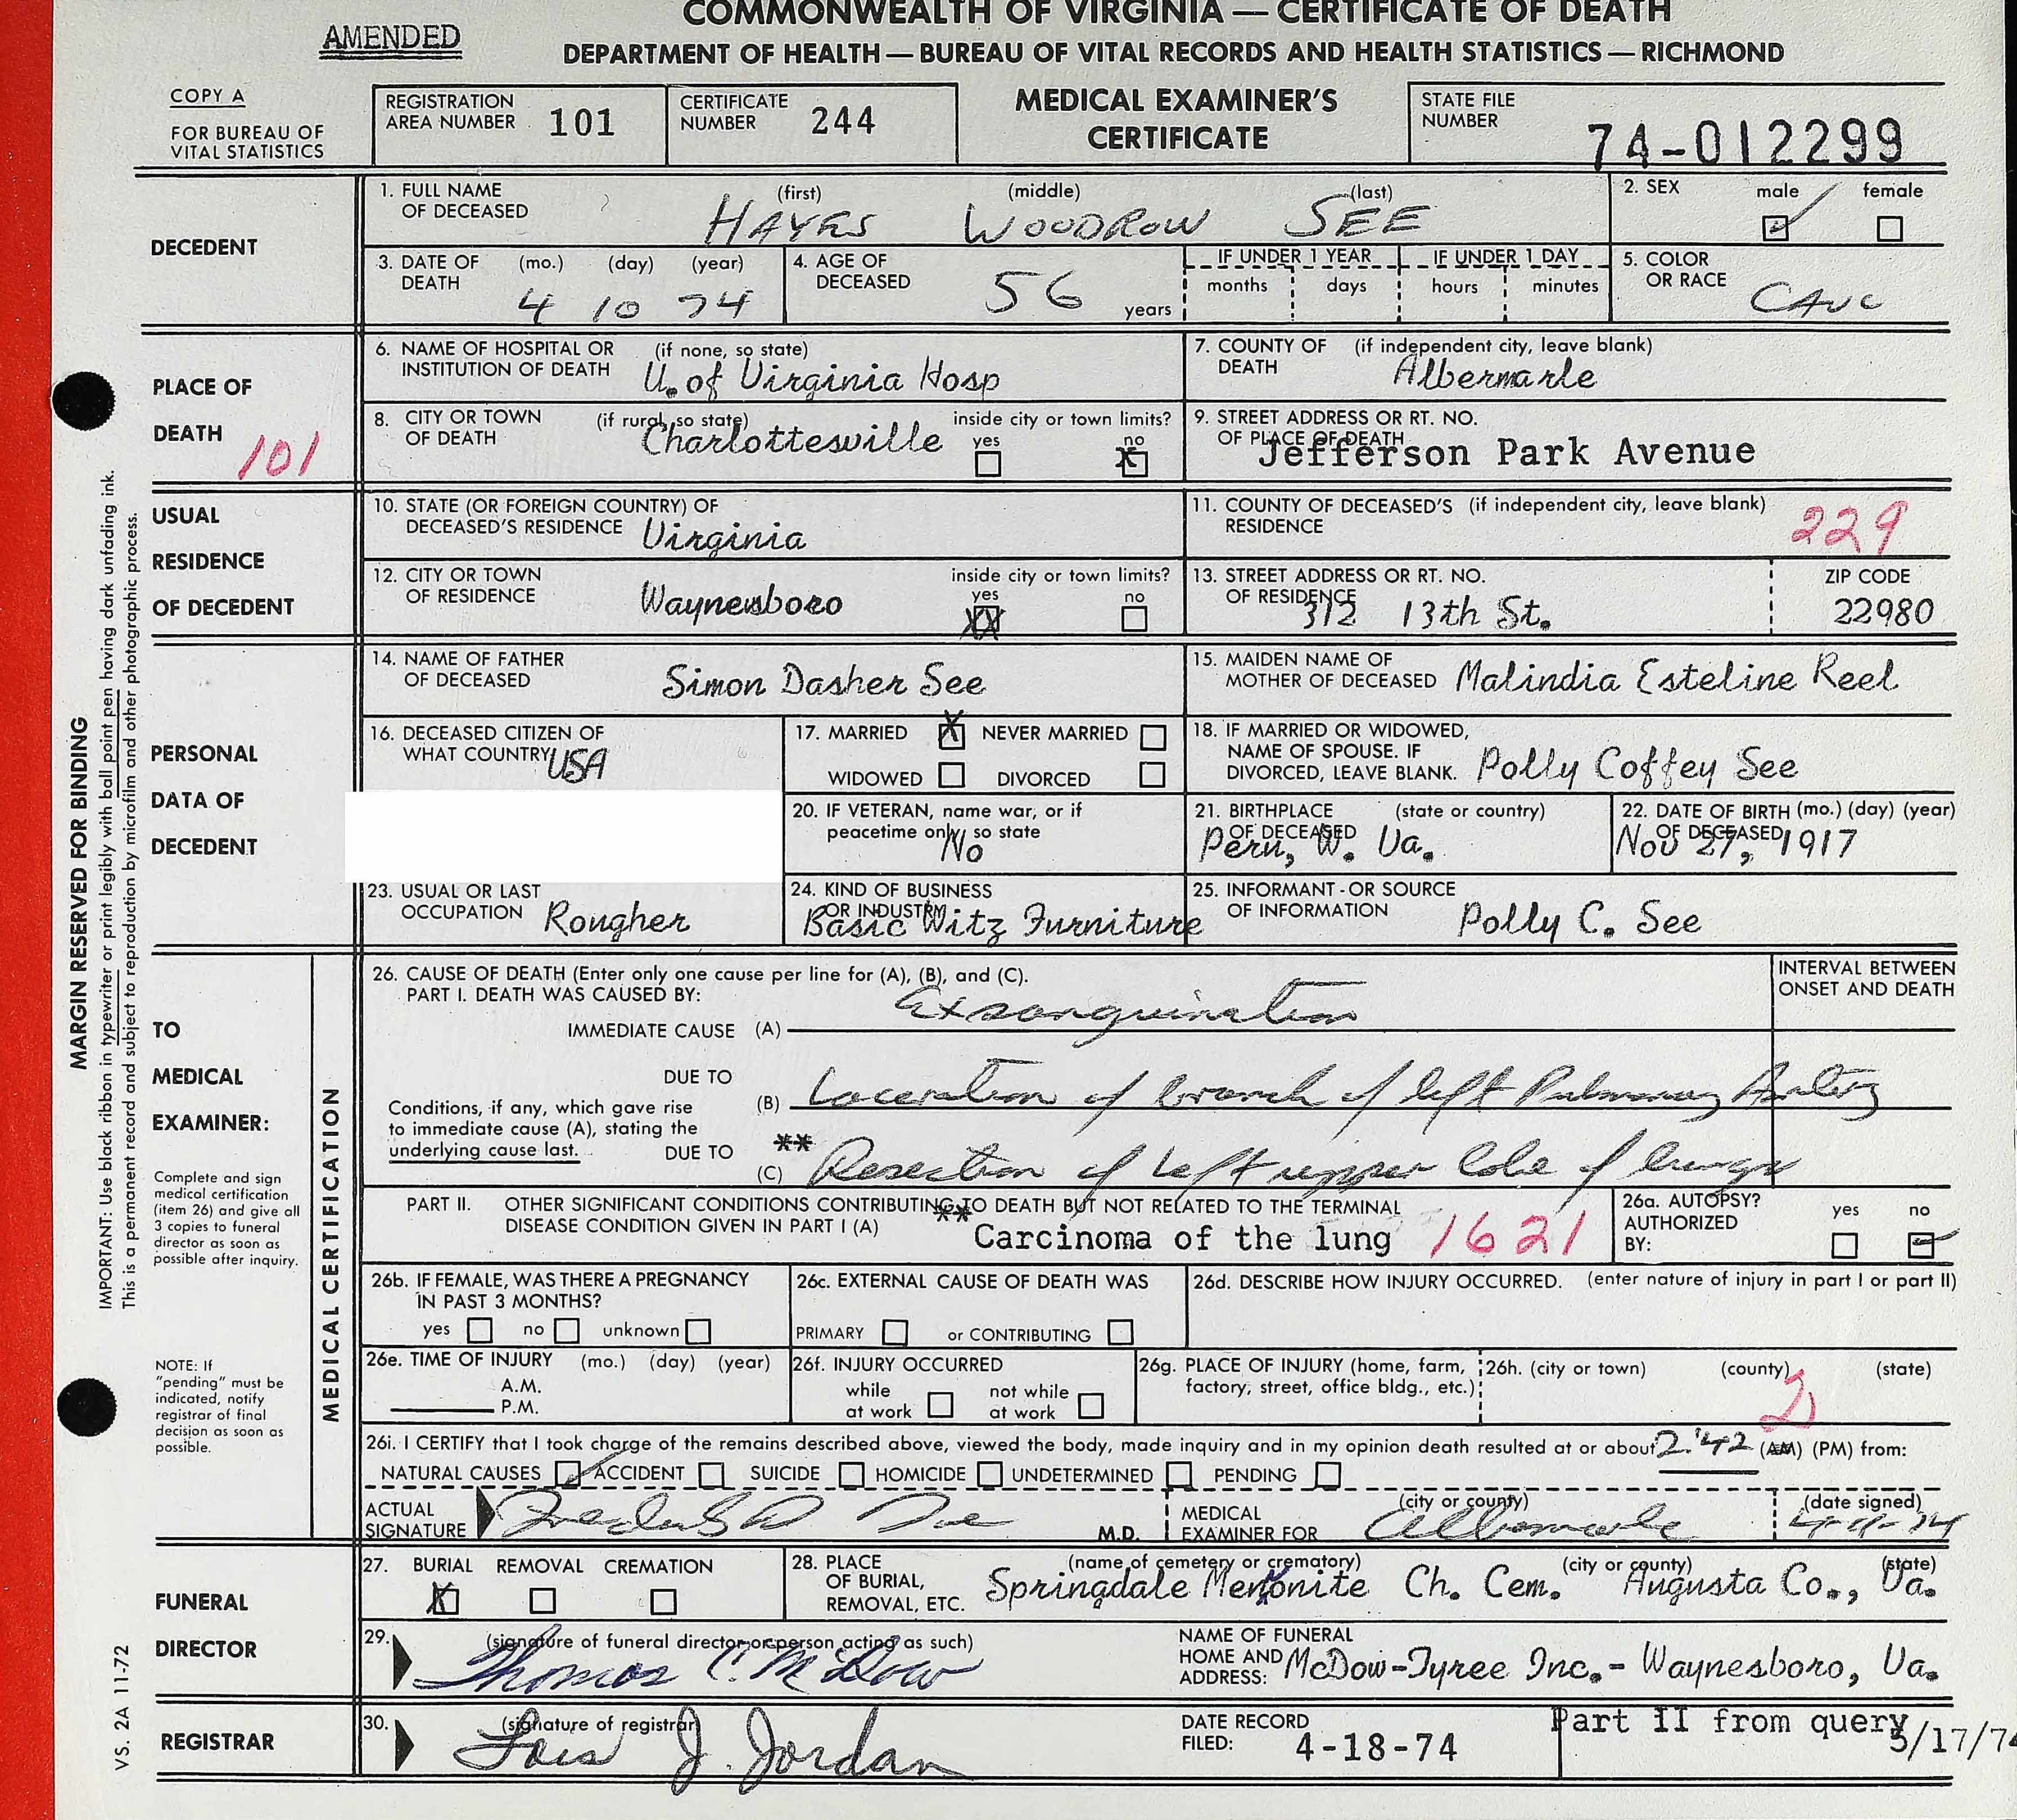 COMMONWEALTH OF VIRGINIA — CERTIFICATE OF DEATH
AMENDED
DEPARTMENT OF HEALTH — BUREAU OF VITAL RECORDS AND HEALTH STATISTICS — RICHMOND
COPY A
FOR BUREAU OF
VITAL STATISTICS
REGISTRATION
AREA NUMBER 101
CERTIFICATE
NUMBER 244
MEDICAL EXAMINER'S
CERTIFICATE
STATE FILE
NUMBER
74-012299
DECEDENT
1. FULL NAME (first) (middle) (last)
OF DECEASED HAYES WOODROW SEE
2. SEX male female
3. DATE OF (mo.) (day) (year)
DEATH 4 10 74
4. AGE OF
DECEASED 56 years
IF UNDER 1 YEAR IF UNDER 1 DAY
months days hours minutes
5. COLOR
OR RACE CAUC
PLACE OF
DEATH 101
6. NAME OF HOSPITAL OR (if none, so state)
INSTITUTION OF DEATH U. of Virginia Hosp
7. COUNTY OF (if independent city, leave blank)
DEATH Albermarle
8. CITY OR TOWN (if rural, so state) inside city or town limits?
OF DEATH Charlottesville yes no X
9. STREET ADDRESS OR RT. NO.
OF PLACE OF DEATH
Jefferson Park Avenue
USUAL
RESIDENCE
OF DECEDENT
10. STATE (OR FOREIGN COUNTRY) OF
DECEASED'S RESIDENCE Virginia
11. COUNTY OF DECEASED'S (if independent city, leave blank)
RESIDENCE 229
12. CITY OR TOWN inside city or town limits?
OF RESIDENCE Waynesboro yes XX no
13. STREET ADDRESS OR RT. NO. ZIP CODE
OF RESIDENCE
312 13th St. 22980
PERSONAL
DATA OF
DECEDENT
14. NAME OF FATHER
OF DECEASED Simon Dasher See
15. MAIDEN NAME OF
MOTHER OF DECEASED Malindia Esteline Reel
16. DECEASED CITIZEN OF
WHAT COUNTRY USA
17. MARRIED X NEVER MARRIED
WIDOWED DIVORCED
18. IF MARRIED OR WIDOWED,
NAME OF SPOUSE. IF
DIVORCED, LEAVE BLANK. Polly Coffey See
20. IF VETERAN, name war, or if
peacetime only, so state
No
21. BIRTHPLACE (state or country)
OF DECEASED
Peru, W. Va.
22. DATE OF BIRTH (mo.) (day) (year)
OF DECEASED
Nov 27, 1917
23. USUAL OR LAST
OCCUPATION Rougher
24. KIND OF BUSINESS
OR INDUSTRY
Basic Witz Furniture
25. INFORMANT - OR SOURCE
OF INFORMATION Polly C. See
TO
MEDICAL
EXAMINER:
Complete and sign
medical certification
(item 26) and give all
3 copies to funeral
director as soon as
possible after inquiry.
NOTE: If
"pending" must be
indicated, notify
registrar of final
decision as soon as
possible.
MEDICAL CERTIFICATION
26. CAUSE OF DEATH (Enter only one cause per line for (A), (B), and (C).
PART I. DEATH WAS CAUSED BY:
INTERVAL BETWEEN
ONSET AND DEATH
IMMEDIATE CAUSE (A) Exsanguination
DUE TO
(B) Laceration of branch of left Pulmonary Artery
Conditions, if any, which gave rise
to immediate cause (A), stating the
underlying cause last. DUE TO **
(C) Resection of Left upper lobe of lung
PART II. OTHER SIGNIFICANT CONDITIONS CONTRIBUTING TO DEATH BUT NOT RELATED TO THE TERMINAL
DISEASE CONDITION GIVEN IN PART I (A) ** Carcinoma of the lung 1621
26a. AUTOPSY? yes no
AUTHORIZED
BY:
26b. IF FEMALE, WAS THERE A PREGNANCY
IN PAST 3 MONTHS?
yes no unknown
26c. EXTERNAL CAUSE OF DEATH WAS
PRIMARY or CONTRIBUTING
26d. DESCRIBE HOW INJURY OCCURRED. (enter nature of injury in part I or part II)
26e. TIME OF INJURY (mo.) (day) (year)
A.M.
P.M.
26f. INJURY OCCURRED
while not while
at work at work
26g. PLACE OF INJURY (home, farm,
factory, street, office bldg., etc.)
26h. (city or town) (county) (state)
2
26i. I CERTIFY that I took charge of the remains described above, viewed the body, made inquiry and in my opinion death resulted at or about 2:42 (AM) (PM) from:
NATURAL CAUSES ACCIDENT SUICIDE HOMICIDE UNDETERMINED PENDING
ACTUAL
SIGNATURE M.D.
MEDICAL (city or county)
EXAMINER FOR Albemarle
(date signed)
4-11-74
FUNERAL
DIRECTOR
27. BURIAL REMOVAL CREMATION
X
28. PLACE (name of cemetery or crematory) (city or county) (state)
OF BURIAL,
REMOVAL, ETC. Springdale Mennonite Ch. Cem. Augusta Co., Va.
29. (signature of funeral director or person acting as such)
Thomas C. McDow
NAME OF FUNERAL
HOME AND
ADDRESS: McDow-Tyree Inc.- Waynesboro, Va.
REGISTRAR
30. (signature of registrar)
Lois J. Jordan
DATE RECORD
FILED: 4-18-74
Part II from query
5/17/74
MARGIN RESERVED FOR BINDING
IMPORTANT: Use black ribbon in typewriter or print legibly with ball point pen having dark unfading ink.
This is a permanent record and subject to reproduction by microfilm and other photographic process.
VS. 2A 11-72